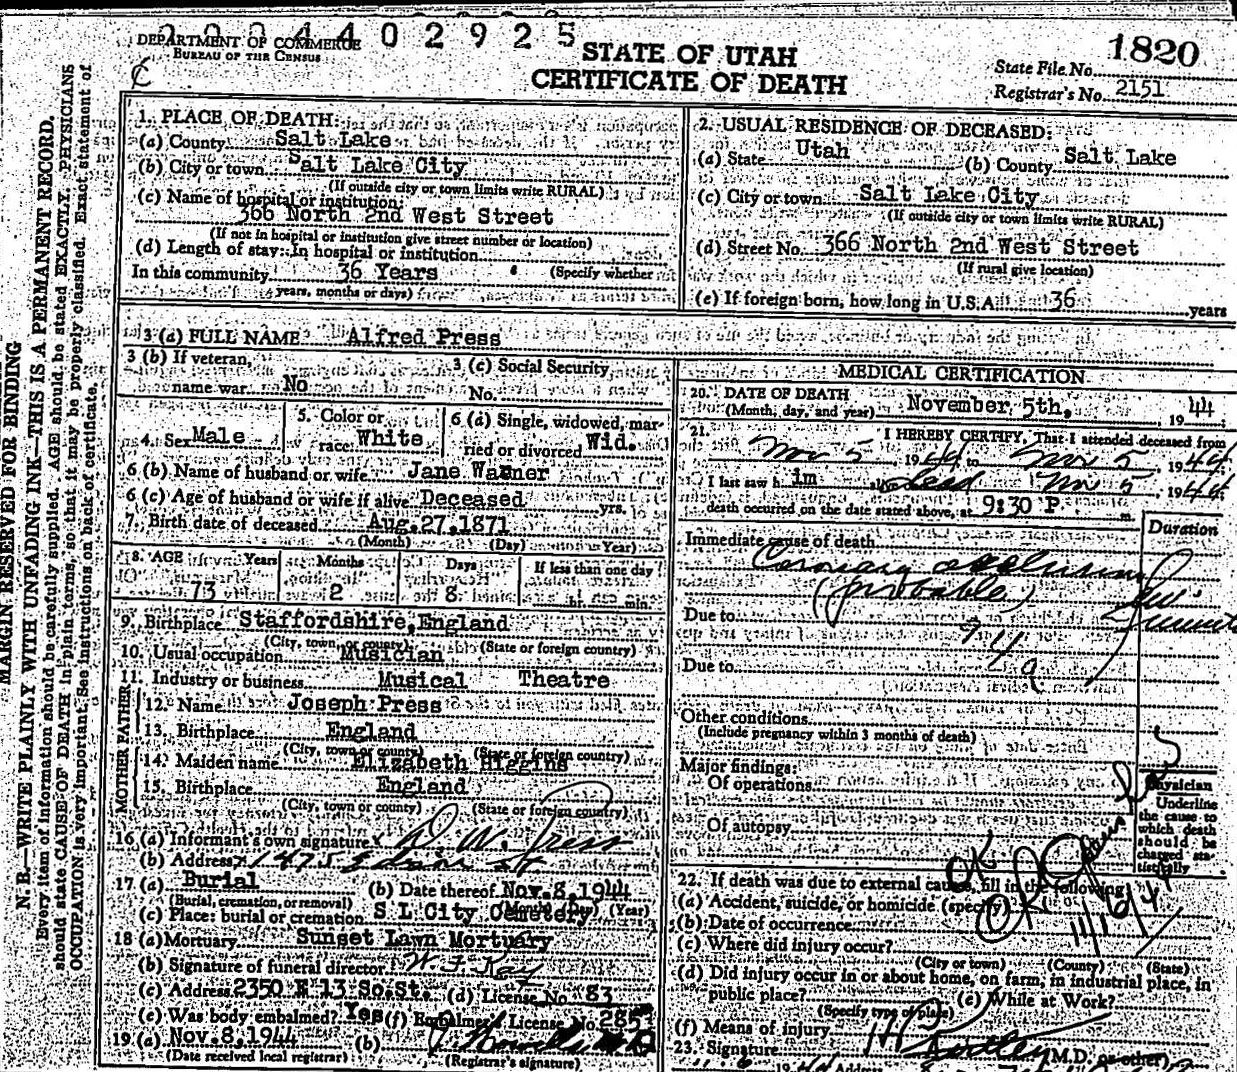 2 0 0 4 4 0 2 9 2 5
DEPARTMENT OF COMMERCE
BUREAU OF THE CENSUS
STATE OF UTAH
CERTIFICATE OF DEATH
1820
State File No.
Registrar's No. 2151
MARGIN RESERVED FOR BINDING
N. B.—WRITE PLAINLY WITH UNFADING INK—THIS IS A PERMANENT RECORD.
Every item of information should be carefully supplied. AGE should be stated EXACTLY. PHYSICIANS
should state CAUSE OF DEATH in plain terms, so that it may be properly classified. Exact statement of
OCCUPATION is very important. See instructions on back of certificate.
1. PLACE OF DEATH:
(a) County Salt Lake
(b) City or town Salt Lake City
(If outside city or town limits write RURAL)
(c) Name of hospital or institution:
366 North 2nd West Street
(If not in hospital or institution give street number or location)
(d) Length of stay: In hospital or institution
In this community 36 Years (Specify whether
years, months or days)
2. USUAL RESIDENCE OF DECEASED:
(a) State Utah (b) County Salt Lake
(c) City or town Salt Lake City
(If outside city or town limits write RURAL)
(d) Street No. 366 North 2nd West Street
(If rural give location)
(e) If foreign born, how long in U.S.A. 36 years
3 (a) FULL NAME Alfred Press
3 (b) If veteran,
name war No
3 (c) Social Security
No.
4. Sex Male
5. Color or
race White
6 (a) Single, widowed, mar-
ried or divorced Wid.
6 (b) Name of husband or wife Jane
6 (c) Age of husband or wife if alive Deceased yrs.
7. Birth date of deceased Aug. 27, 1871
(Month) (Day) (Year)
8. AGE Years Months Days If less than one day
73 2 8 hr. min.
9. Birthplace Staffordshire, England
(City, town, or county) (State or foreign country)
10. Usual occupation Musician
11. Industry or business Musical Theatre
FATHER
12. Name Joseph Press
13. Birthplace England
(City, town or county) (State or foreign country)
MOTHER
14. Maiden name Elizabeth Higgins
15. Birthplace England
(City, town or county) (State or foreign country)
16 (a) Informant's own signature Press
(b) Address 1475
17 (a) Burial (b) Date thereof Nov. 8, 1944
(Burial, cremation, or removal) (Month) (Day) (Year)
(c) Place: burial or cremation S L City Cemetery
18 (a) Mortuary Sunset Lawn Mortuary
(b) Signature of funeral director
(c) Address 2350 E 13 So. St. (d) License No. 83
(e) Was body embalmed? Yes (f) Embalmer's License No. 285
19 (a) Nov. 8, 1944 (b)
(Date received local registrar) (Registrar's signature)
MEDICAL CERTIFICATION
20. DATE OF DEATH
(Month, day, and year) November 5th, 1944
21. I HEREBY CERTIFY, That I attended deceased from
Nov 5 1944 to Nov 5, 1944
I last saw him dead Nov 5, 1944
death occurred on the date stated above, at 9:30 P. m.
Immediate cause of death Duration
Coronary occlusion
(probable)
Due to 94 a
Due to
Other conditions
(Include pregnancy within 3 months of death)
Major findings:
Of operations
Of autopsy
Physician
Underline
the cause to
which death
should be
charged sta-
tistically
OK
11/16/44
22. If death was due to external cause, fill in the following:
(a) Accident, suicide, or homicide (specify)
(b) Date of occurrence
(c) Where did injury occur?
(City or town) (County) (State)
(d) Did injury occur in or about home, on farm, in industrial place, in
public place? (e) While at Work?
(Specify type of place)
(f) Means of injury
23. Signature (M.D. or other)
19 44 Address